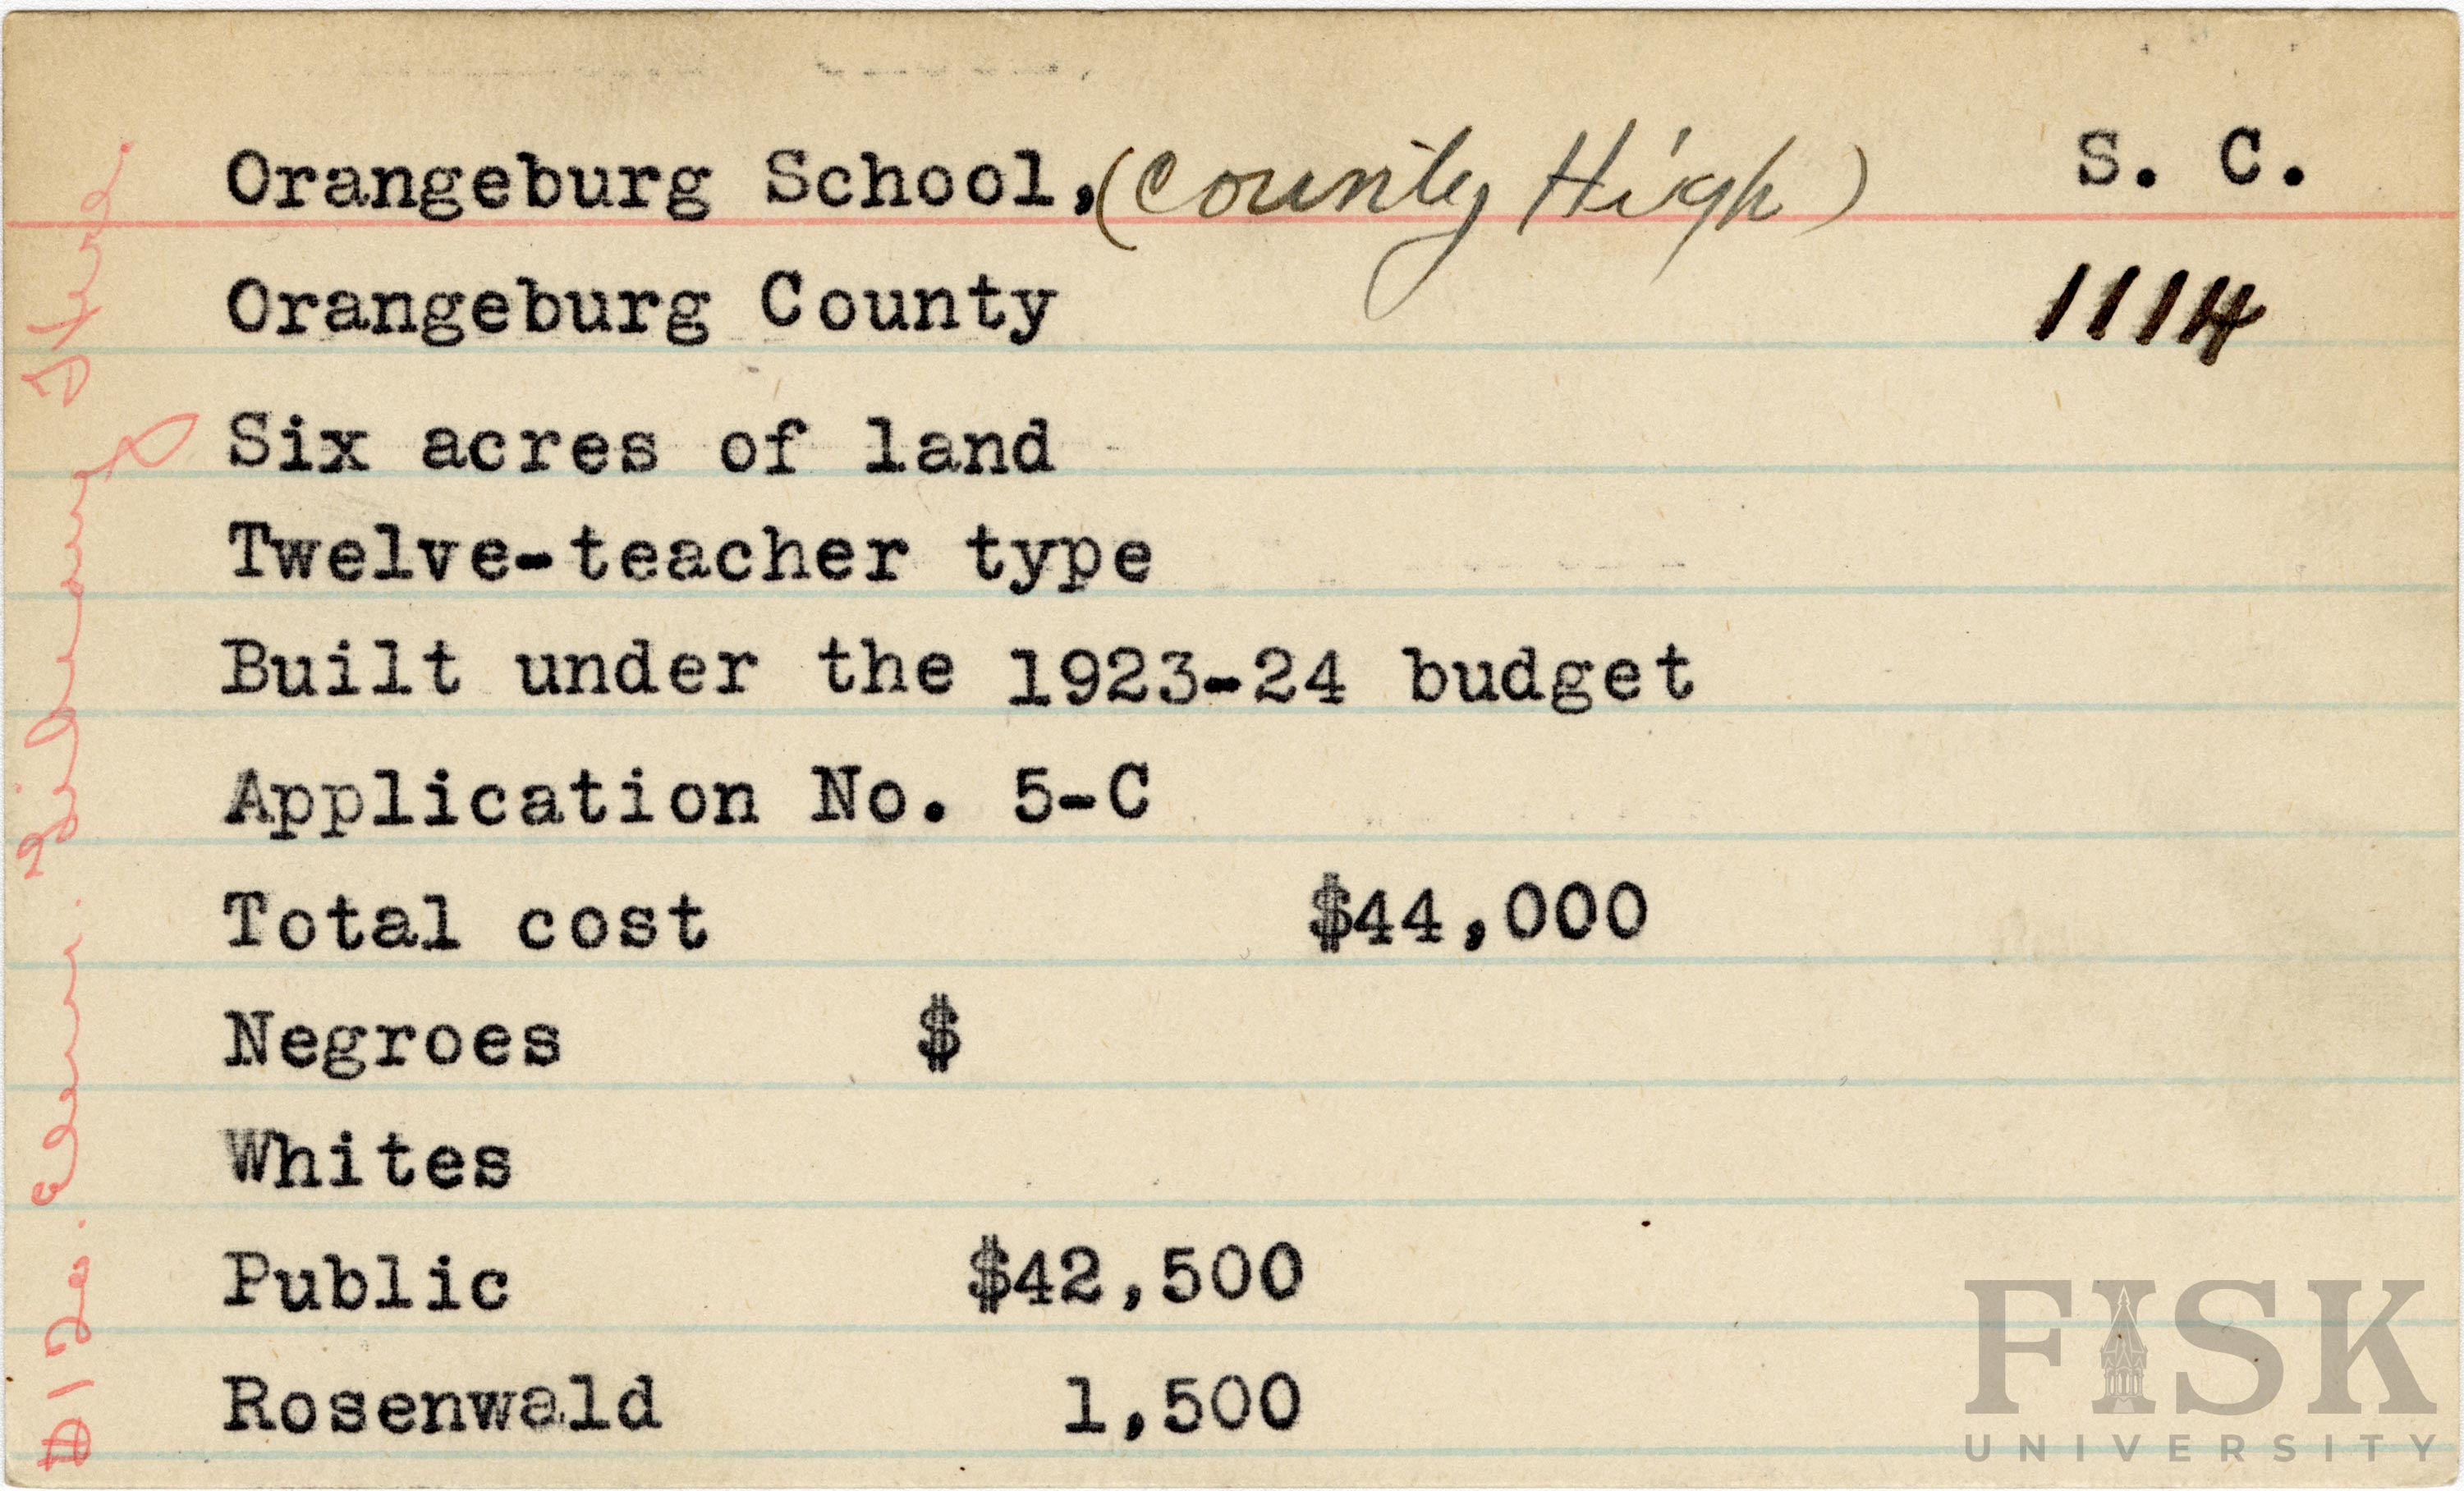 Orangeburg School, (County High) S. C.
Orangeburg County 1114
Six acres of land
Twelve-teacher type
Built under the 1923-24 budget
Application No. 5-C
Total cost $44,000
Negroes $
Whites
Public $42,500
Rosenwald 1,500
$120. Elem. Library
FISK
UNIVERSITY